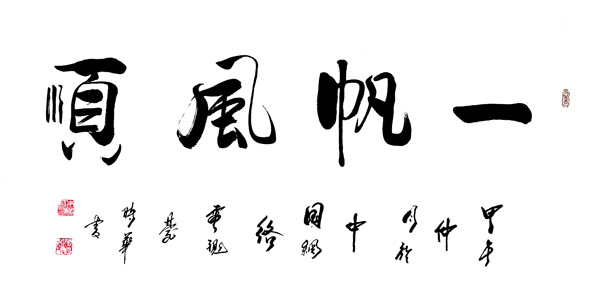 一帆風順
甲午仲月於中國網絡電視華書